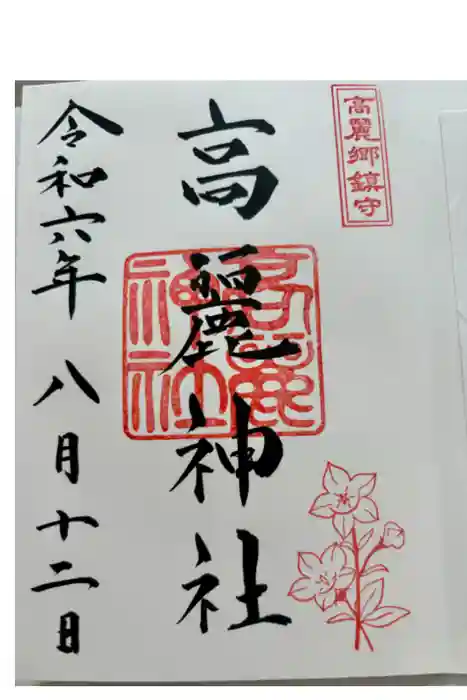 高麗郷鎮守
高麗神社
令和六年 八月十二日